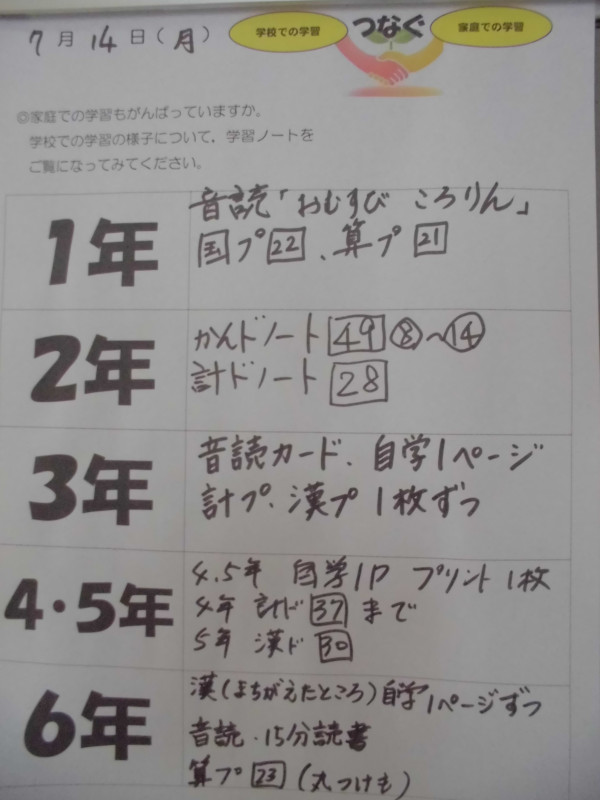 7月14日(月)
学校での学習 つなぐ 家庭での学習
◎家庭での学習もがんばっていますか。
学校での学習の様子について、学習ノートを
ご覧になってみてください。
1年
音読「おむすび ころりん」
国プ22、算プ21
2年
かんドノート 49 ⑧〜⑭
計ドノート 28
3年
音読カード、自学1ページ
計プ、漢プ 1枚ずつ
4・5年
4.5年 自学1P プリント1枚
4年 計ド 37 まで
5年 漢ド 30
6年
漢(まちがえたところ)自学1ページずつ
音読・15分読書
算プ 23 (丸つけも)